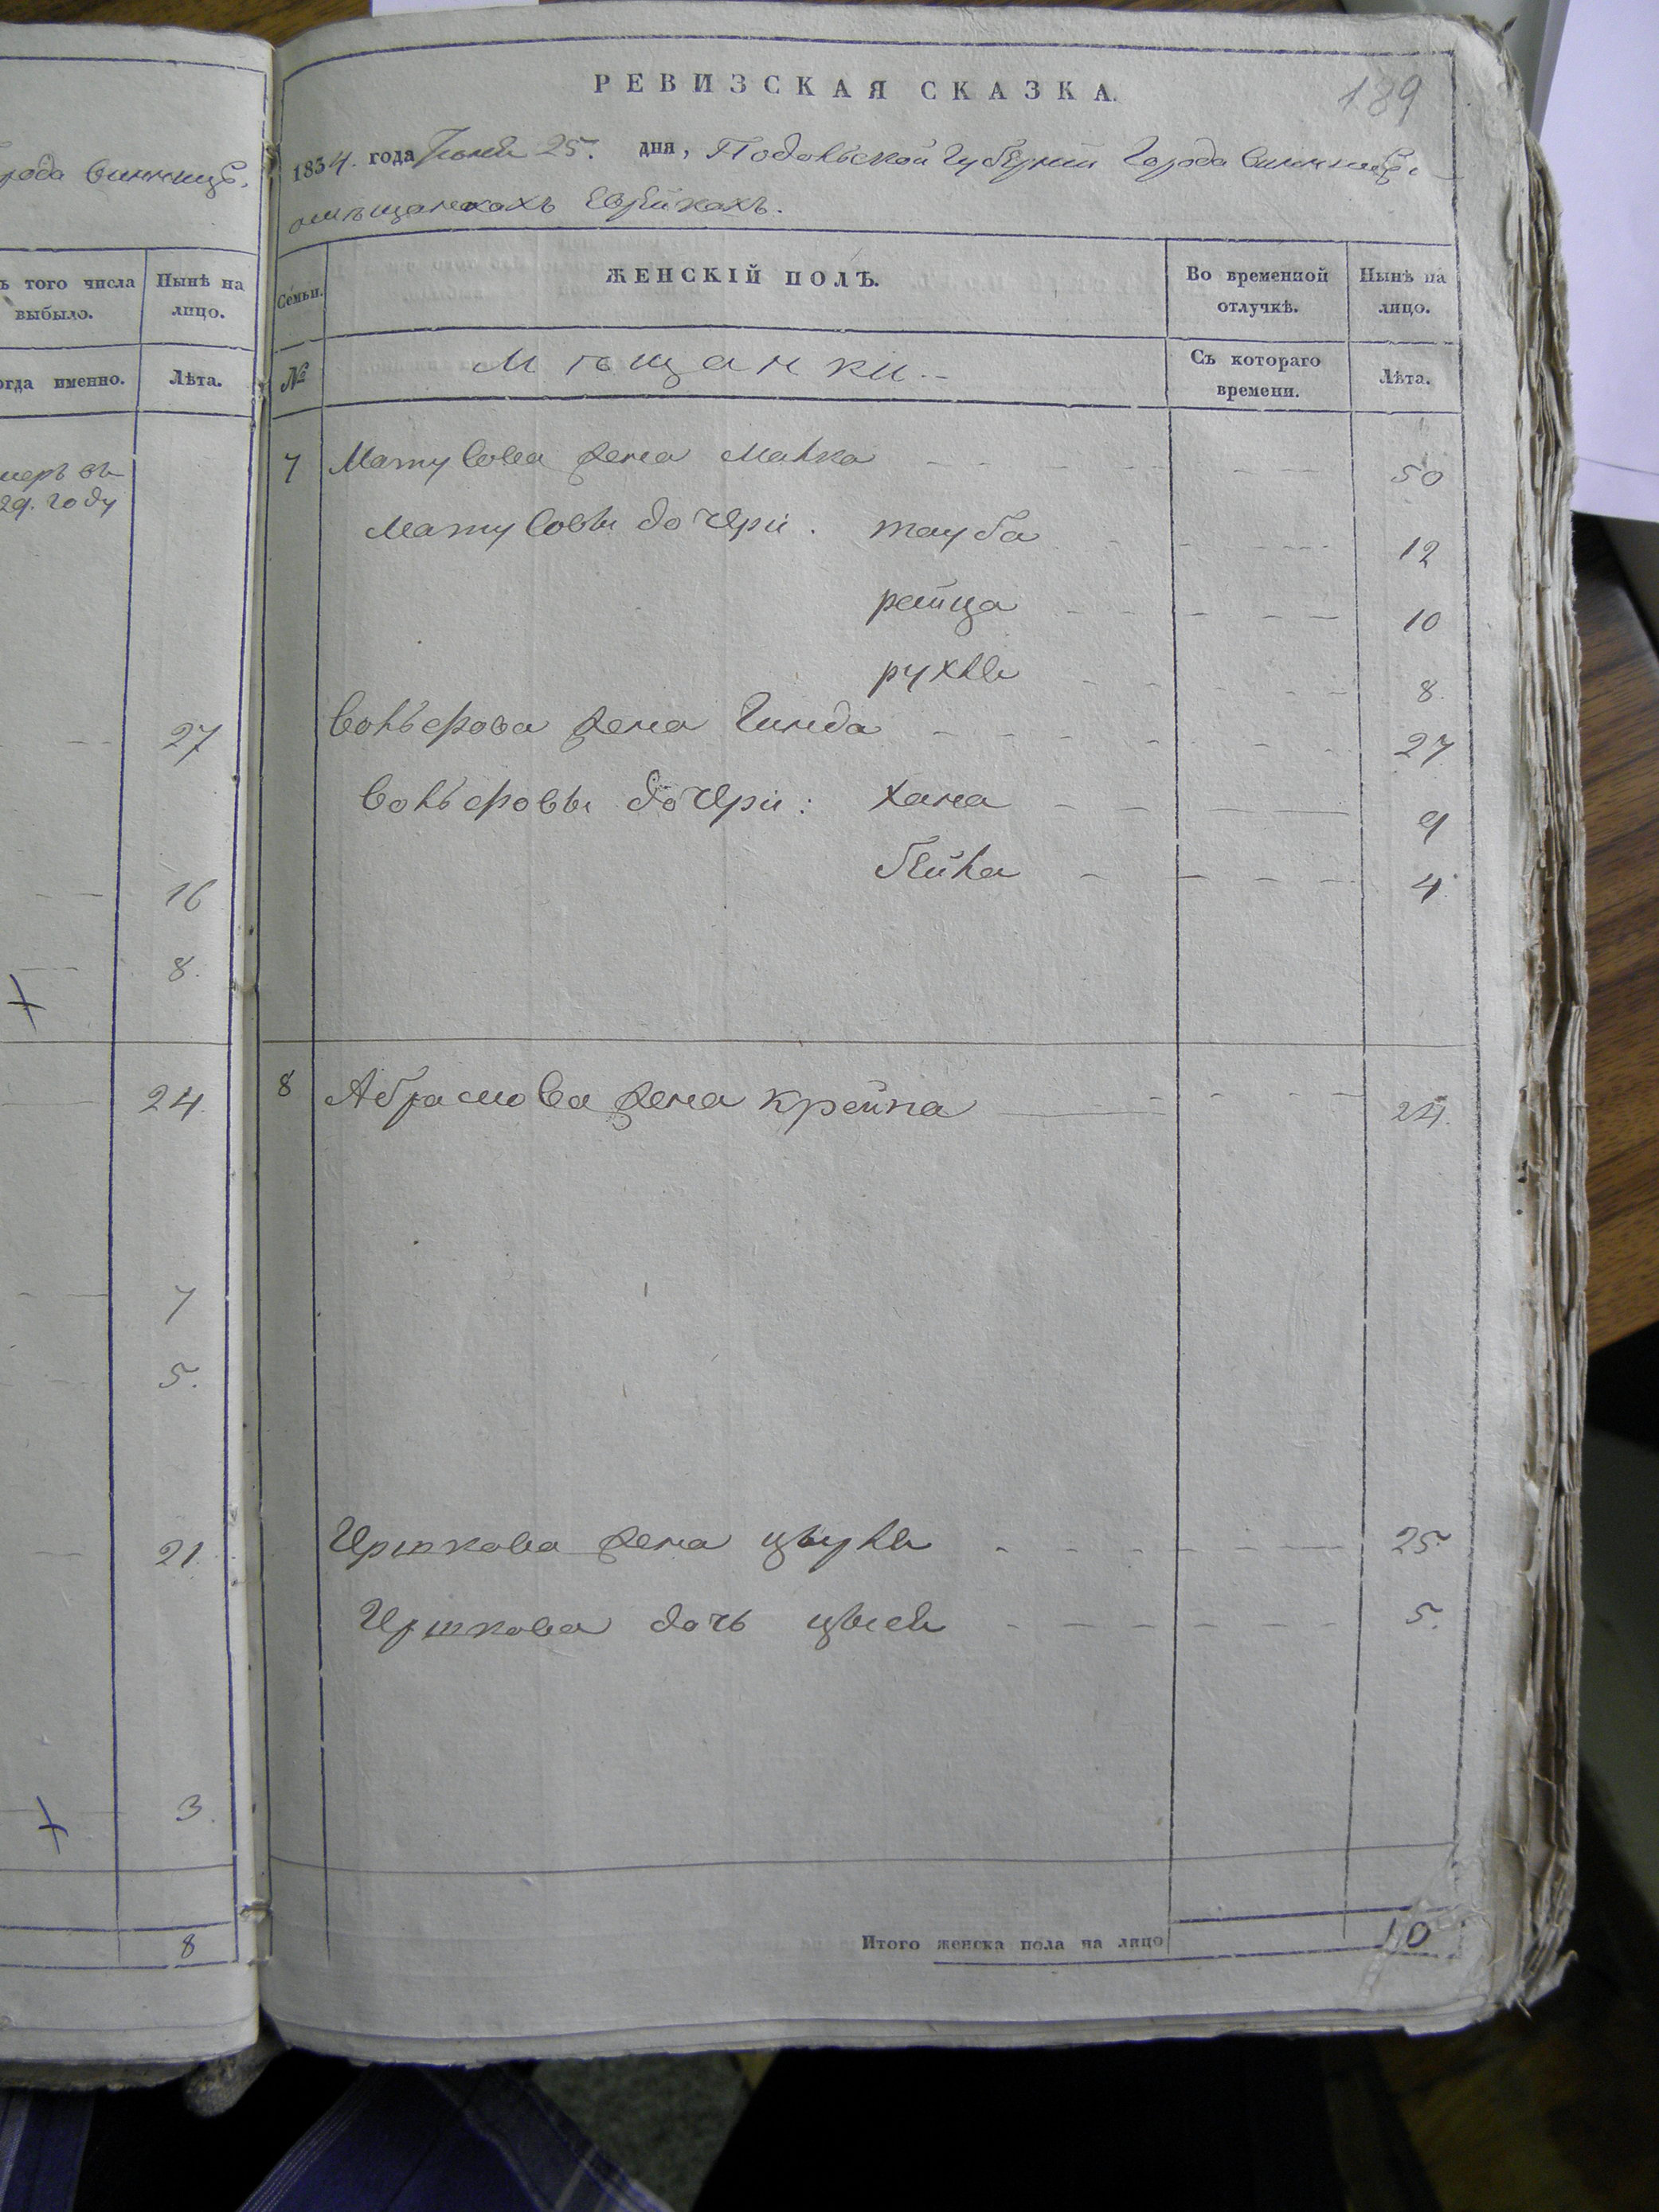 рода Винницѣ.
ъ того числа выбыло.
Нынѣ на лицо.
огда именно.
Лѣта.
меръ въ
29. году
27
16
8.
24.
7
5.
21.
3.
8
189
РЕВИЗСКАЯ СКАЗКА.
1834. года Іюня 25. дня, Подольской Губерніи Города Винницѣ
омѣщанкахъ Еврейкахъ.
Семьи. ЖЕНСКІЙ ПОЛЪ. Во временной отлучкѣ. Нынѣ на лицо.
№ Мѣщанки. Съ котораго времени. Лѣта.
7 Матусова жена Малка 50
Матусовы дочери. тауба 12
рейца 10
рухля 8.
Вольфова жена Гинда 27
Вольфовы дочери: хана 9
бейла 4.
8 Абрамова жена крейна 24.
Иршкова жена 25
Иршкова дочь 5.
Итого женска пола на лицо 10